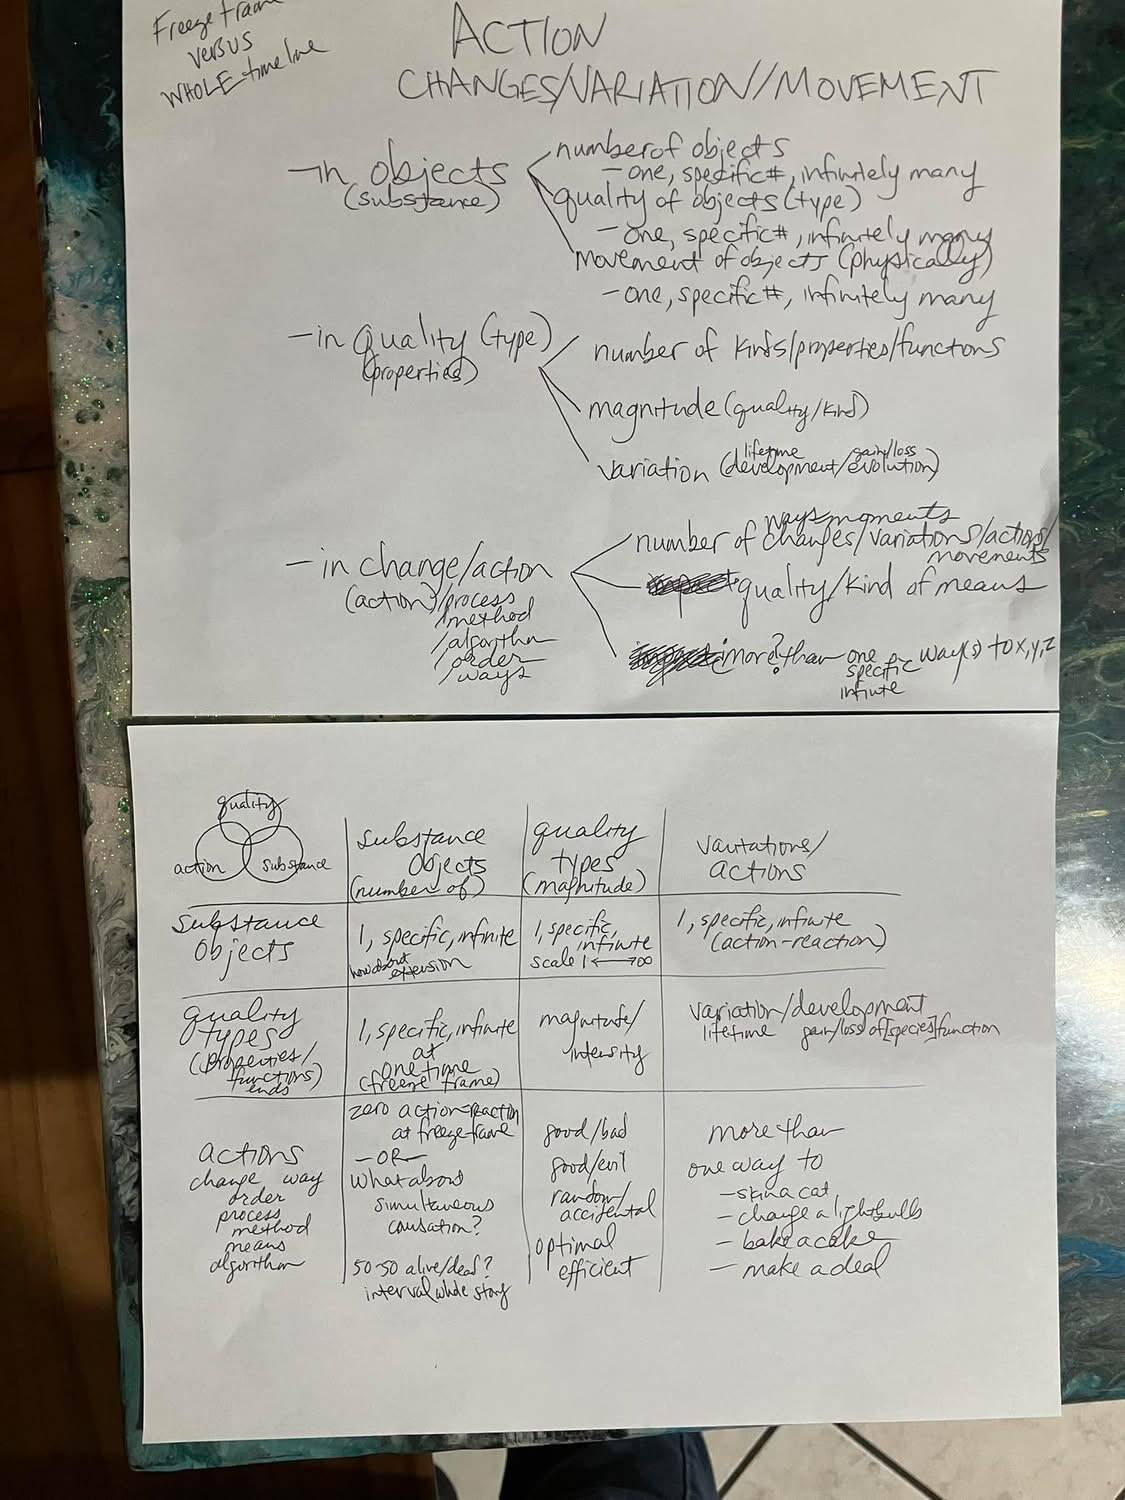 Freeze fram
versus
WHOLE timeline
ACTION
CHANGES/VARIATION//MOVEMENT
– in objects
(substance)
number of objects
– one, specific #, infinitely many
quality of objects (type)
– one, specific #, infinitely many
movement of objects (physically)
– one, specific #, infinitely many
– in quality (type)
(properties)
number of kinds/properties/functions
magnitude (quality/kind)
lifetime gain/loss
variation (development/evolution)
– in change/action
(action)/process
/method
/algorithm
/order
/ways
ways moments
number of changes/variations/actions/
movements
quality/kind of means
more than one way(s) to x, y, z
?
specific
infinite
quality
action
substance
substance
objects
(number of)
quality
types
(magnitude)
variations/
actions
substance
objects
1, specific, infinite
how about
extension
1, specific,
infinite
scale 1 ⟷ ∞
1, specific, infinite
(action-reaction)
quality
types
(properties/
functions)
ends
1, specific, infinite
at
one time
(freeze frame)
magnitude/
intensity
variation/development
lifetime gain/loss of [species] function
actions
change way
order
process
method
means
algorithm
zero action-reaction
at freeze frame
– OR –
What about
simultaneous
causation?
50-50 alive/dead?
interval whole story
good/bad
good/evil
random/
accidental
optimal
efficient
more than
one way to
– skin a cat
– change a lightbulb
– bake a cake
– make a deal